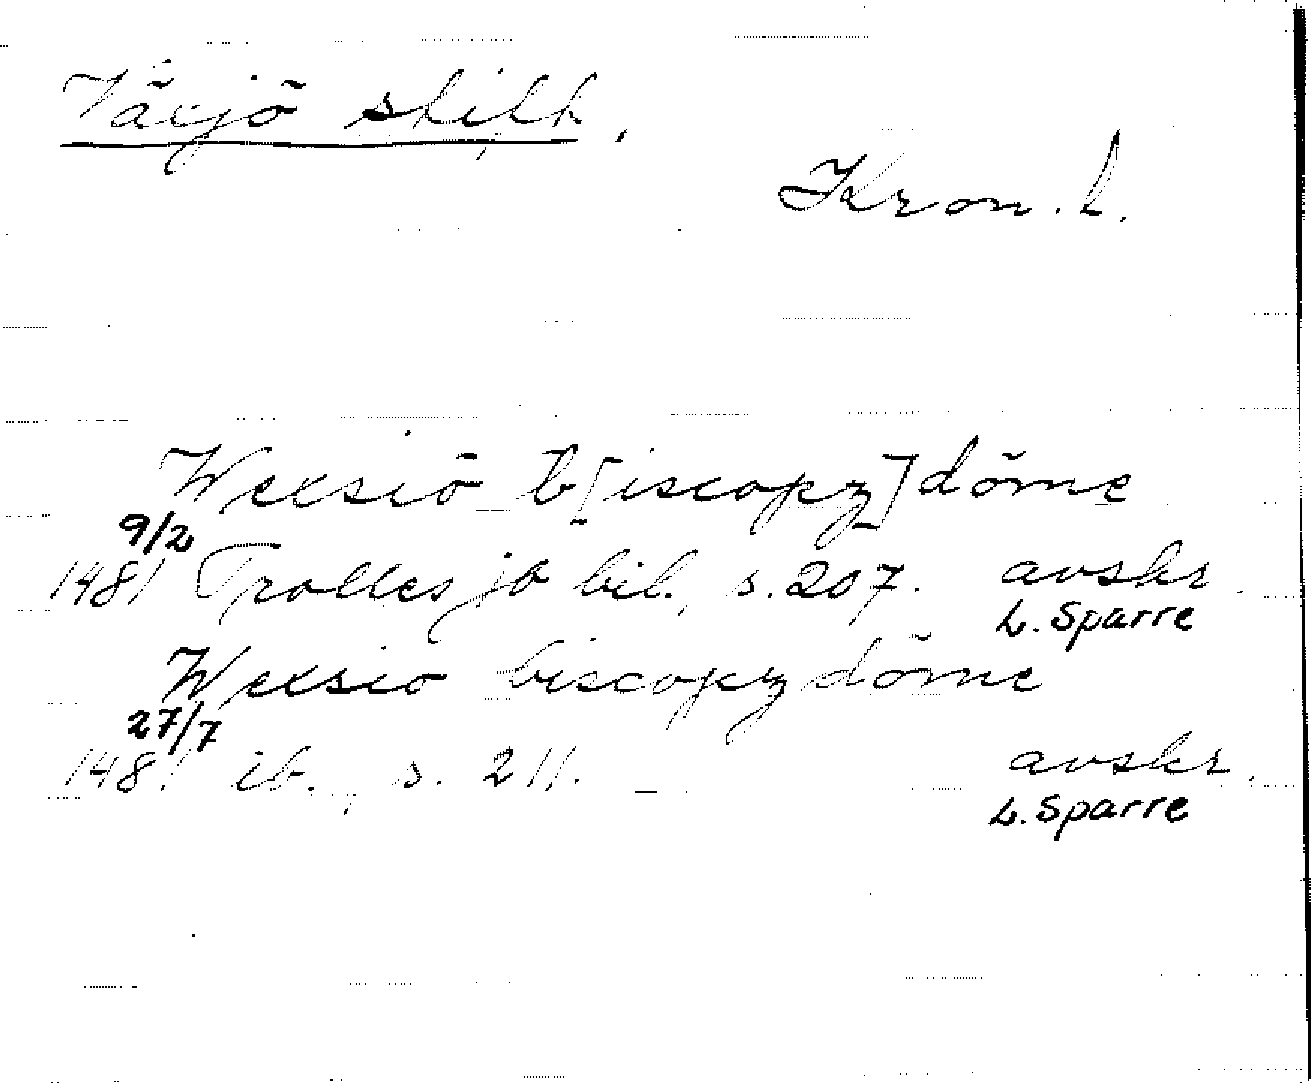 Växjö stift,
Kron. l.
Wexsiö b[iscopz]döme
9/2
1481 Trolles jb bil., s. 207. avskr.
L. Sparre
Wexsiö biscopzdöme
27/7
1481 ib., s. 211. avskr.
L. Sparre